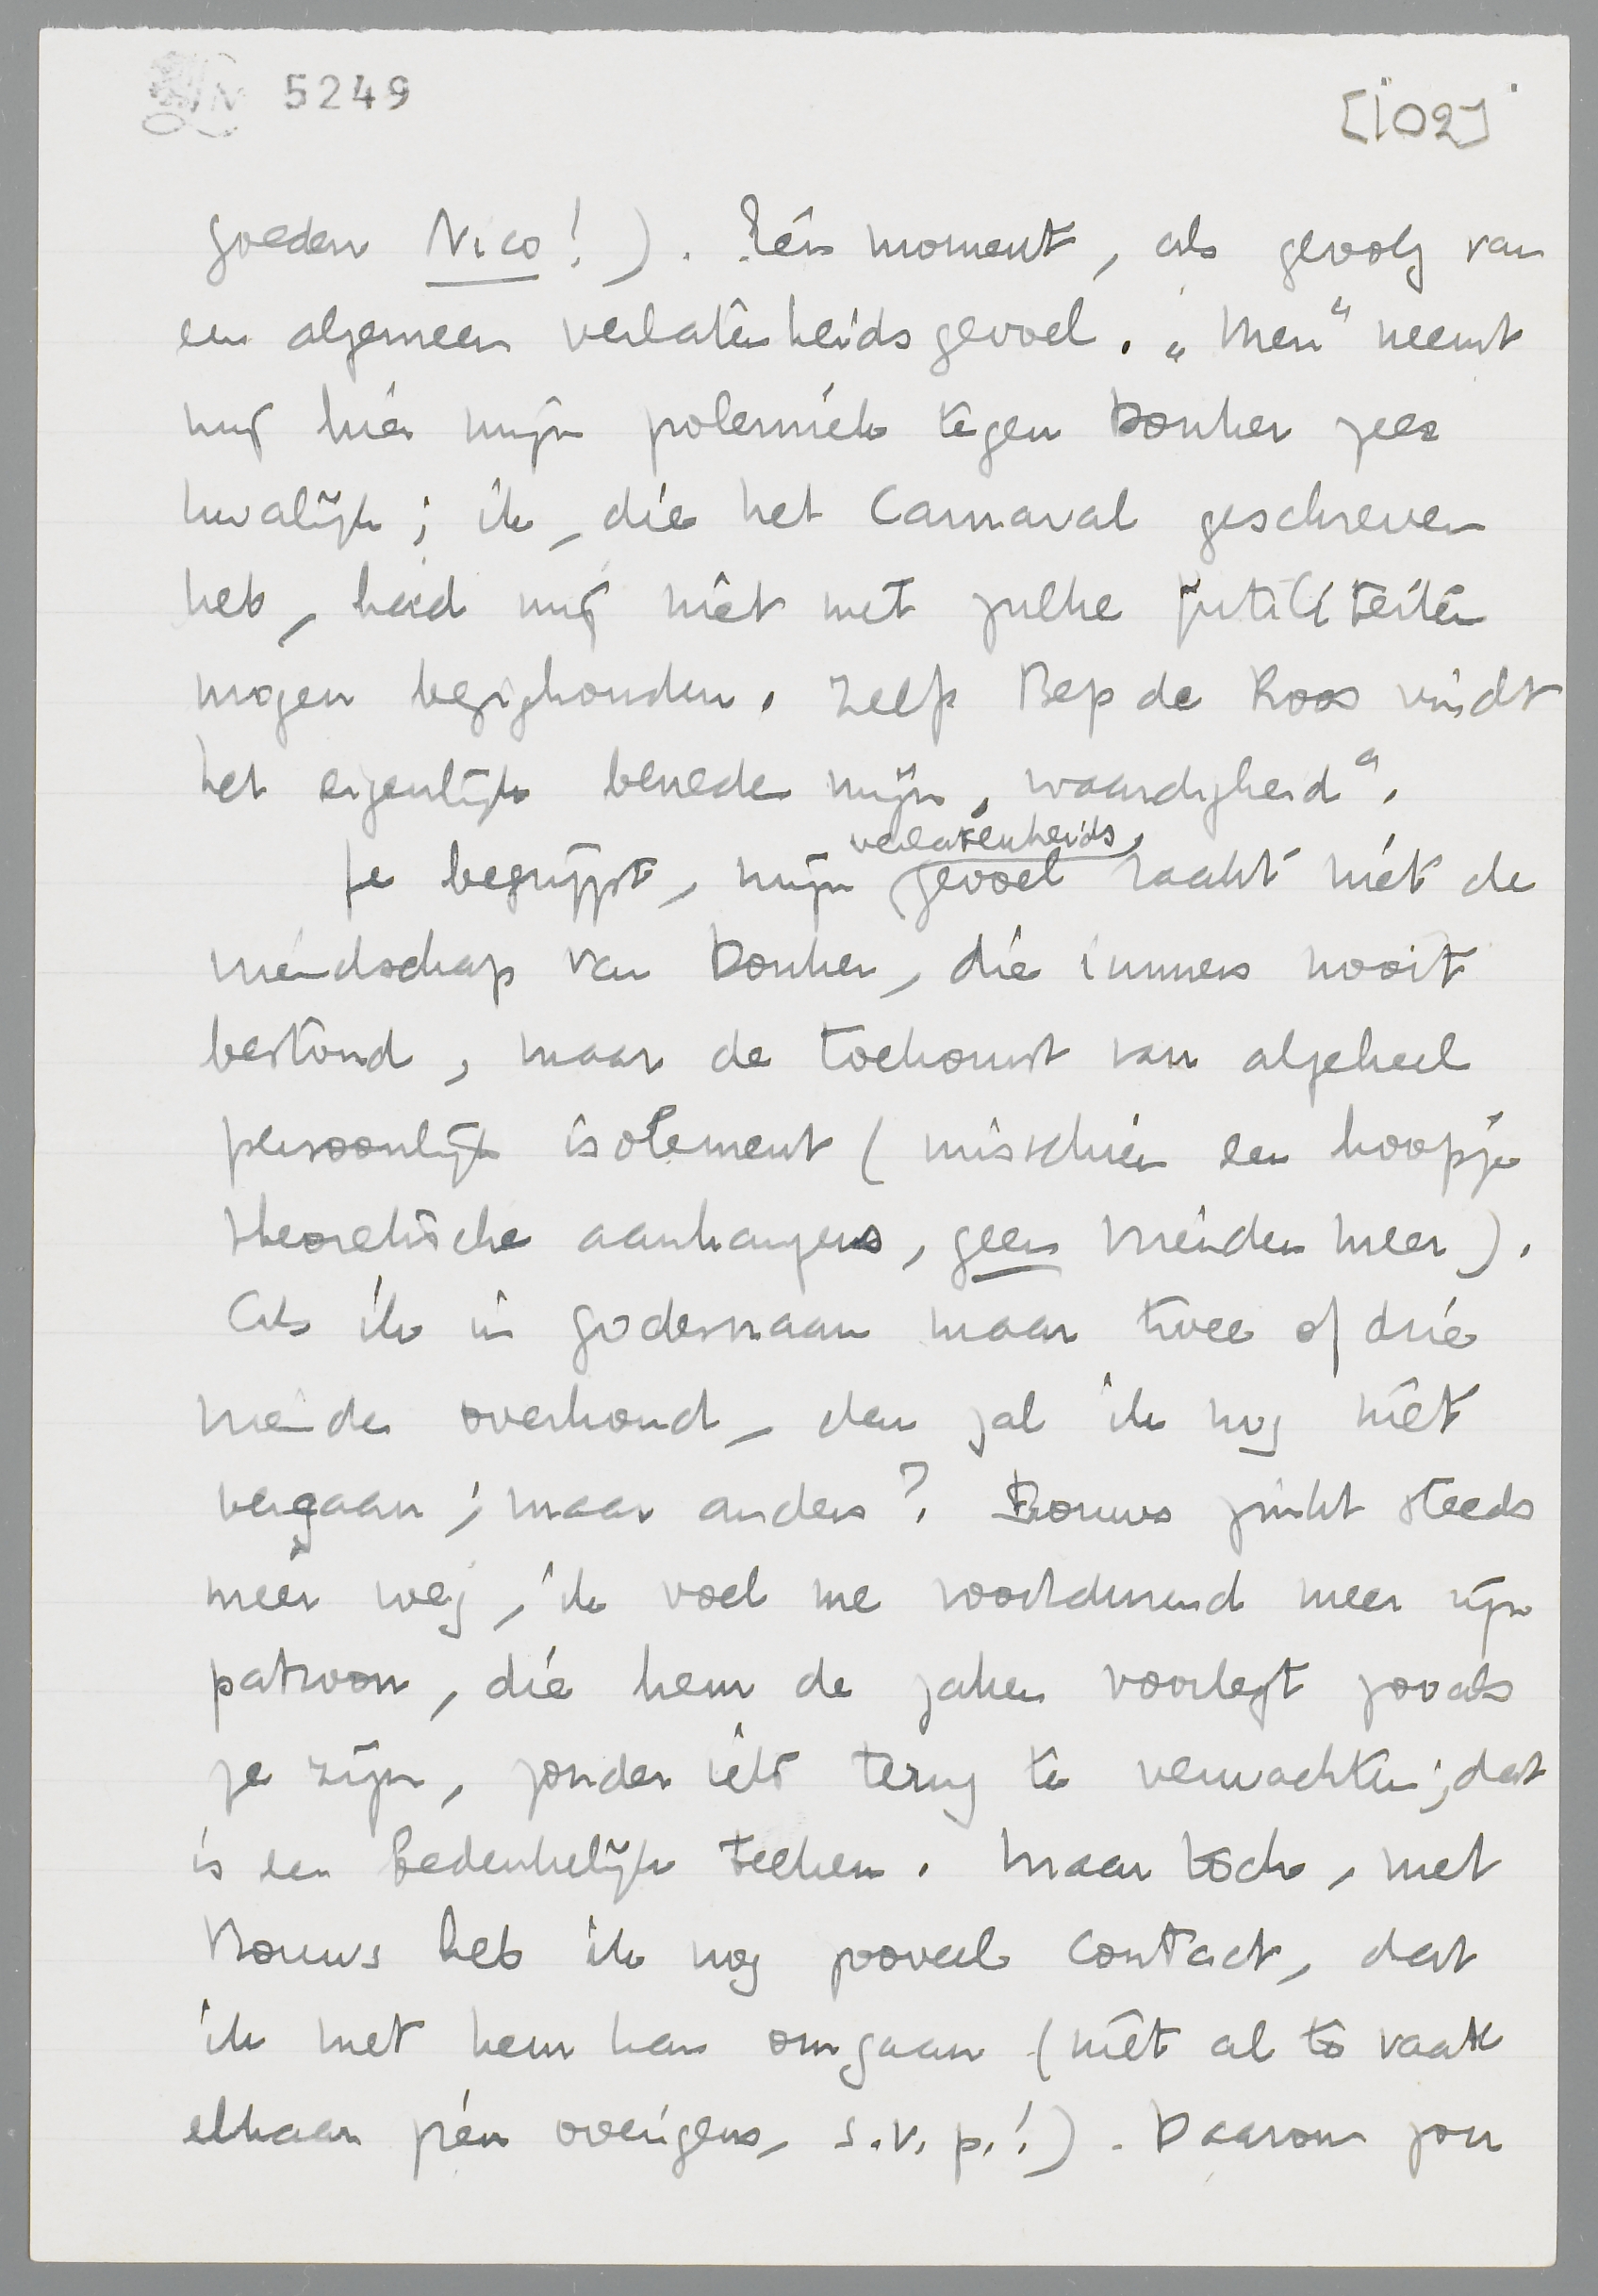 5249
[102]
goeden Nico!). Eén moment, als gevolg van
een algemeen verlatenheidsgevoel. „Men" neemt
mij hier mijn polemiek tegen Donker zeer
kwalijk; ik, die het Carnaval geschreven
heb, had mij niet met zulke futiliteiten
mogen bezighouden. Zelfs Bep de Roos vindt
het eigenlijk beneden mijn „waardigheid".
verlatenheids
Je begrijpt, mijn gevoel raakt niet de
vriendschap van Donker, die immers nooit
bestond, maar de toekomst van algeheel
persoonlijk isolement (misschien een hoopje
theoretische aanhangers, geen vrienden meer).
Als ik in godesnaam maar twee of drie
vrienden overhoud, dan zal ik nog niet
vergaan; maar anders? Bouws zinkt steeds
meer weg, ik voel me voortdurend meer zijn
patroon, die hem de zaken voorlegt zooals
ze zijn, zonder iets terug te verwachten; dat
is een bedenkelijk teeken. Maar toch, met
Bouws heb ik nog zooveel contact, dat
ik met hem kan omgaan (niet al te vaak
elkaar zien overigens, s.v.p.!). Daarom zou